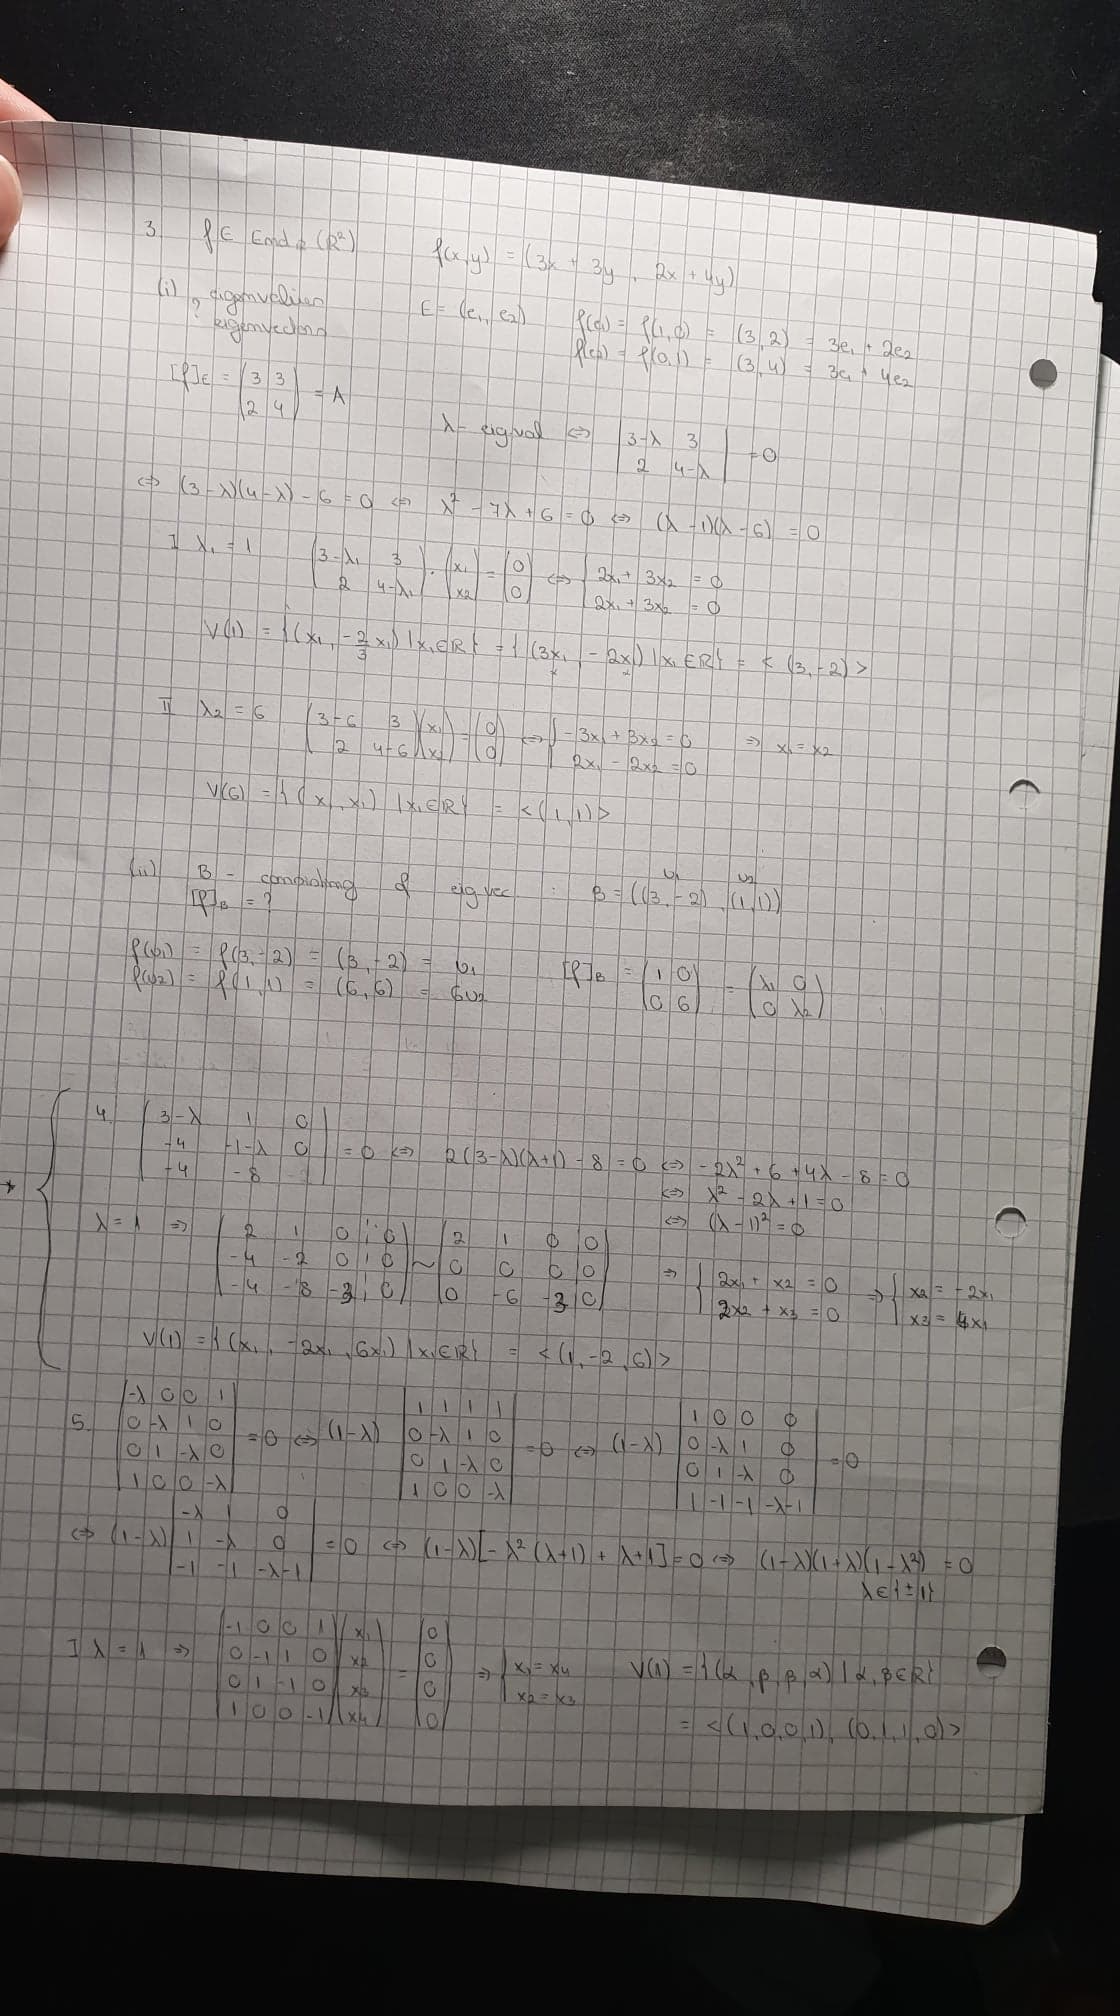 3. f ∈ End_R(R²) f(x,y) = (3x + 3y, 2x + 4y)
(i) eigenvalues, eigenvectors E = (e₁, e₂) f(e₁) = f(1,0) = (3,2) = 3e₁ + 2e₂
f(e₂) = f(0,1) = (3,4) = 3e₁ + 4e₂
[f]_E = (3 3; 2 4) = A
λ - eigval ⇔ |3-λ 3; 2 4-λ| = 0
⇔ (3-λ)(4-λ) - 6 = 0 ⇔ λ² - 7λ + 6 = 0 ⇔ (λ-1)(λ-6) = 0
I λ₁ = 1 (3-λ₁ 3; 2 4-λ₁) · (x₁; x₂) = (0; 0) ⇔ { 2x₁ + 3x₂ = 0; 2x₁ + 3x₂ = 0
V(1) = {(x₁, -2/3 x₁) | x₁∈R} = {(3x₁, -2x₁) | x₁∈R} = <(3,-2)>
II λ₂ = 6 (3-6 3; 2 4-6)(x₁; x₂) = (0; 0) ⇔ { -3x₁ + 3x₂ = 0; 2x₁ - 2x₂ = 0 ⇒ x₁ = x₂
V(6) = {(x₁, x₁) | x₁∈R} = <(1,1)>
(ii) B - of eigvec : B = ((3,-2), (1,1)) v₁ v₂
[f]_B = ?
f(v₁) = f(3,-2) = (3,-2) = v₁ [f]_B = (1 0; 0 6) = (λ₁ 0; 0 λ₂)
f(v₂) = f(1,1) = (6,6) = 6v₂
* 4. |3-λ 1 0; -4 -1-λ 0; -4 -8| = 0 ⇔ 2(3-λ)(λ+1) - 8 = 0 ⇔ -2λ² + 6 + 4λ - 8 = 0
⇔ λ² - 2λ + 1 = 0
⇔ (λ-1)² = 0
λ = 1 ⇒ (2 1 0 | 0; -4 -2 0 | 0; -4 -8 -3 | 0) ~ (2 1 0 0; 0 0 0 0; 0 -6 -3 0) ⇒ { 2x₁ + x₂ = 0; 2x₂ + x₃ = 0 ⇒ { x₂ = -2x₁; x₃ = x₁
V(1) = {(x₁, -2x₁, 6x₁) | x₁∈R} = <(1,-2,6)>
5. |-λ 0 0 1; 0 -λ 1 0; 0 1 -λ 0; 1 0 0 -λ| = 0 ⇔ (1-λ) |1 1 1 1; 0 -λ 1 0; 0 1 -λ 0; 1 0 0 -λ| = 0 ⇔ (1-λ) |1 0 0 0; 0 -λ 1 0; 0 1 -λ 0; 1 -1 -1 -λ-1| = 0
⇔ (1-λ) |-λ 1 0; 1 -λ 0; -1 -1 -λ-1| = 0 ⇔ (1-λ)[-λ²(λ+1) + λ+1] = 0 ⇒ (1-λ)(1+λ)(1-λ²) = 0
λ∈{±1}
I λ = 1 ⇒ (-1 0 0 1; 0 -1 1 0; 0 1 -1 0; 1 0 0 -1)(x₁; x₂; x₃; x₄) = (0; 0; 0; 0) ⇒ { x₁ = x₄; x₂ = x₃ V(1) = {(α, β, β, α) | α, β∈R}
= <(1,0,0,1), (0,1,1,0)>